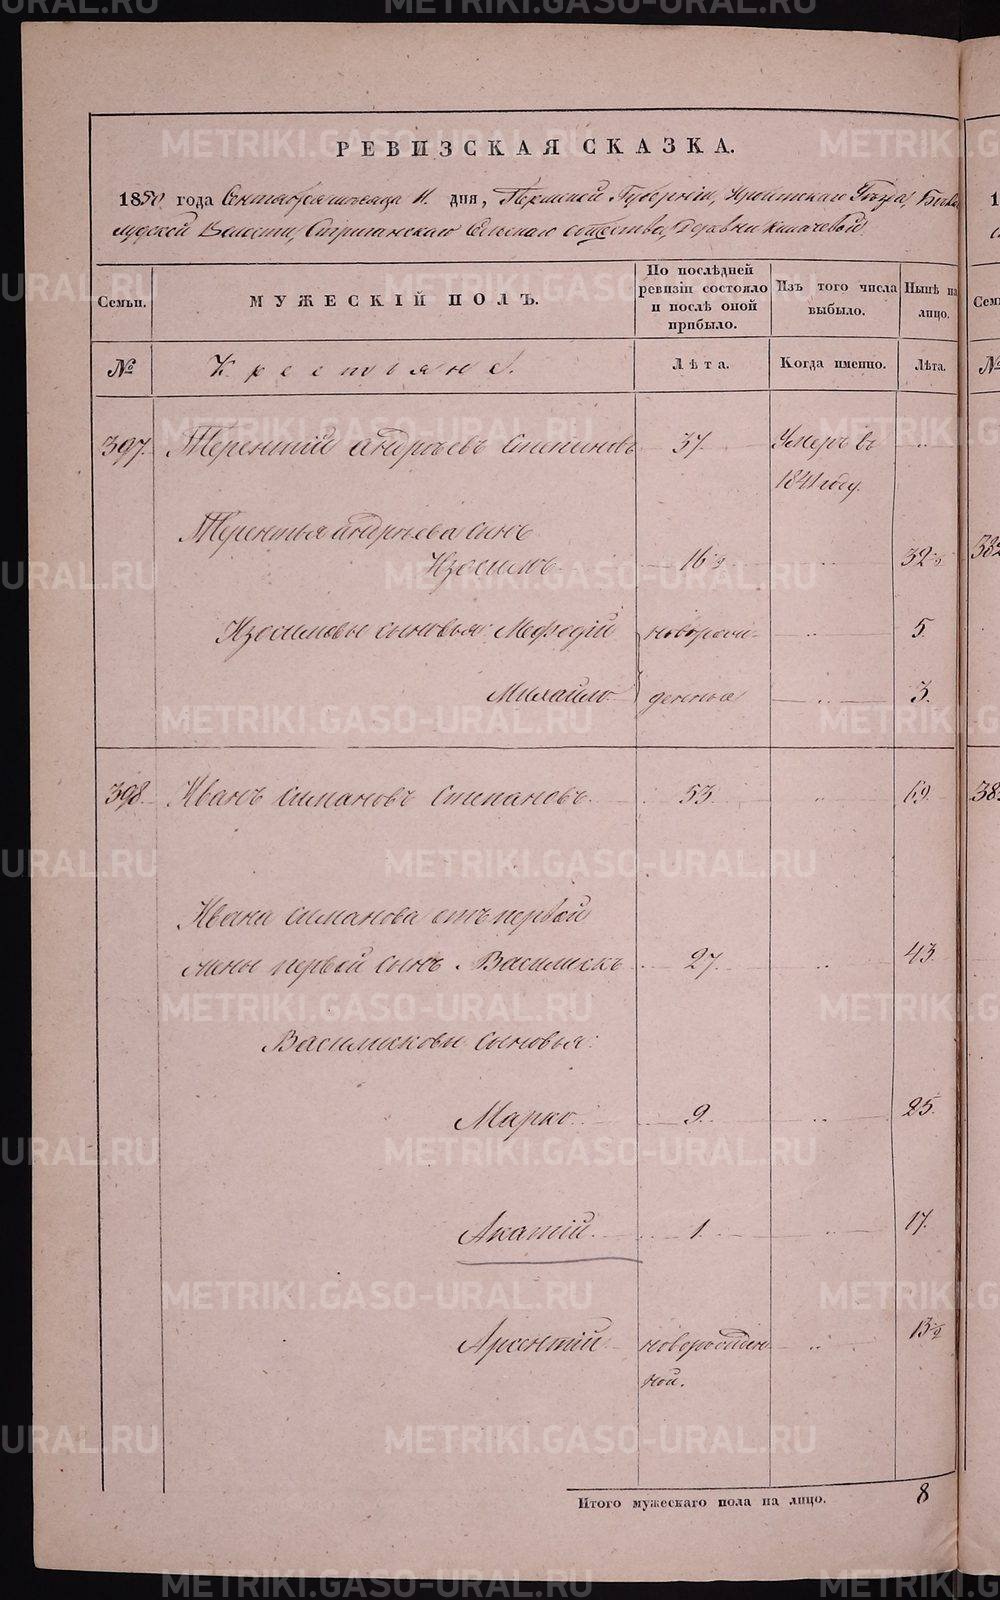 РЕВИЗСКАЯ СКАЗКА.
1850 года Сентября месяца 11 дня, Пермской Губернии, Ирбитскаго Уѣзда, Бѣло
лудской Волости, Стриганскаго Сельскаго общества, Деревни Кипачевой
Семьи.
МУЖЕСКІЙ ПОЛЪ.
По послѣдней
ревизіи состояло
и послѣ оной
прибыло.
Изъ того числа
выбыло.
Нынѣ на
лицо.
№
Крестьяне.
Лѣта.
Когда именно.
Лѣта.
397. Терентій Андреевъ Степановъ 37. Умеръ въ ..
1841 году.
Терентья Андреева сынъ
Изосимъ 16½ .. 32½
Изосимовы сыновья: Мефодій новорож- .. 5.
Михайло денные .. 3.
398. Иванъ Симановъ Степановъ. 53. .. 69.
Ивана Симанова отъ первой
жены первой сынъ Василискъ 27. .. 43.
Василисковы сыновья:
Марко. 9. .. 25.
Акатій. 1. .. 17.
Арсентій новорожден .. 13½
ной.
Итого мужескаго пола на лицо. 8
Сем
№
METRIKI.GASO-URAL.RU